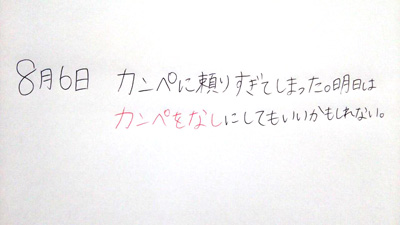 8月6日 カンペに頼りすぎてしまった。明日は
カンペをなしにしてもいいかもしれない。